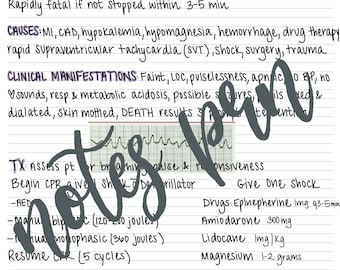 Rapidly fatal if not stopped within 3-5 min
CAUSES: MI, CAD, hypokalemia, hypomagnesia, hemorrhage, drug therapy
rapid supraventricular tachycardia (SVT), shock, surgery, trauma
CLINICAL MANIFESTATIONS: Faint, LOC, pulselessness, apnea, no BP, no
♡ sounds, resp & metabolic acidosis, possible seizures, pupils fixed &
dialated, skin mottled, DEATH results
notes pen
TX: Assess pt for breathing, pulse & responsiveness
Begin CPR give 1 shock Defibrillator Give one shock
-AED Drugs: Ephepherine 1mg q3-5min
-Manual biphasic (120-200 joules) Amiodarone 300mg
-Manual monophasic (360 joules) Lidocane 1mg/kg
Resume CPR (5 cycles) Magnesium 1-2 grams